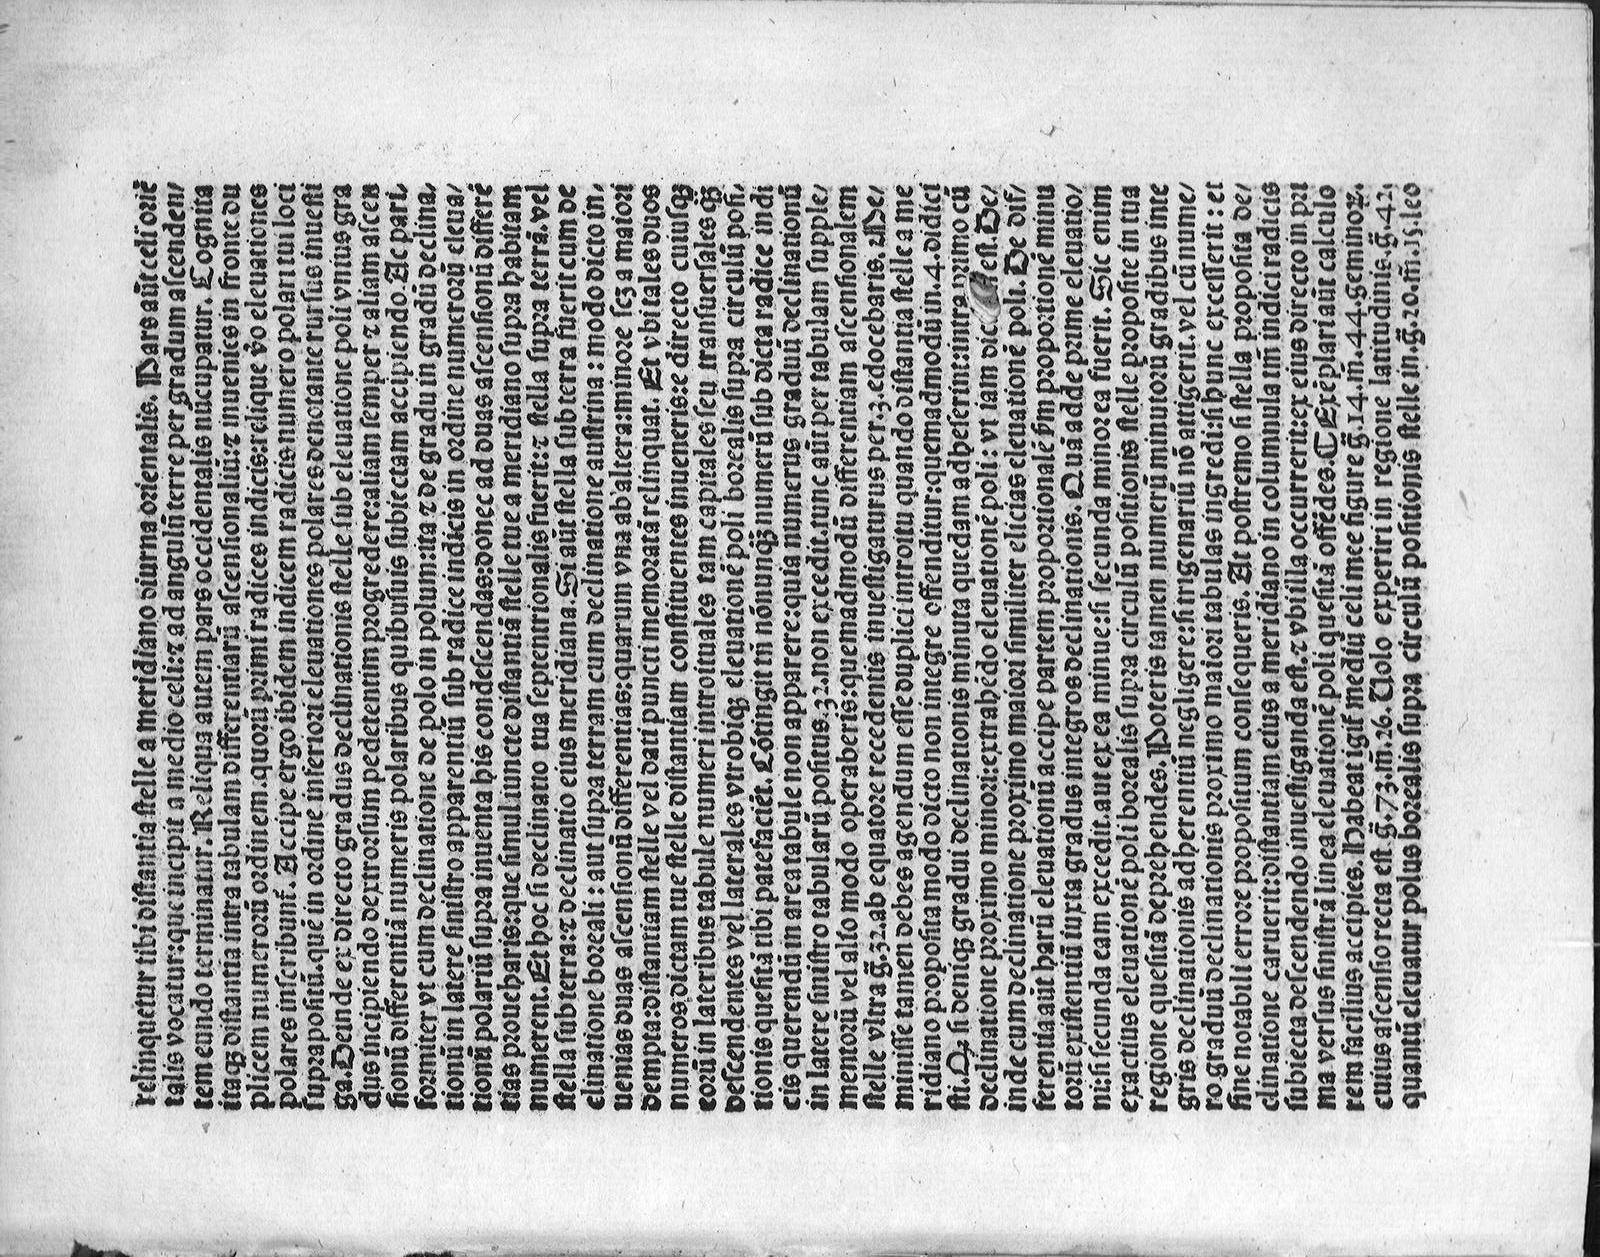 relinquetur tibi distantia stelle a meridiano diurna orientalis. Pars aūt celi oriē
talis vocatur: que incipit a medio celi: ⁊ ad angulū terre per gradum ascenden/
tem eundo terminatur. Reliqua autem pars occidentalis nūcupatur. Cognita
itaqꝫ distantia intra tabulam differentiarū ascensionaliū: ⁊ inuenies in fronte du
plicem numerorū ordinem. quorū primi radices indicis: relique ꝟo eleuationes
polares inscribunt̄. Accipe ergo ibidem indicem radicis numero polari tui loci
suprapositū. que in ordine inferiori eleuationes polares denotante rursus inuesti
ga. Deinde ex directo gradus declinationis stelle sub eleuatione poli vnius gra
dus incipiendo dextrorsum pedetentim progredere: aliam semper ⁊ aliam ascen
sionū differentiā numeris polaribus quibusuis subiectam accipiendo. Ac pari,
formiter vt cum declinatione de polo in polum: ita ⁊ de gradu in gradū declina,
tionū in latere sinistro apparentiū sub radice indicis in ordine numerorū eleua/
tionū polariū supra inuenta his condescendas: donec ad duas ascensionū differē
tias proueharis: que simul iuncte distantiā stelle tue a meridiano supra habitam
numerent. Et hoc si declinatio tua septentrionalis fuerit: ⁊ stella supra terrā. vel
stella sub terra: ⁊ declinatio eius meridiana. Si aūt stella sub terra fuerit cum de
clinatione boreali: aut supra terram cum declinatione austrina: modo dicto in,
uenias duas ascensionū differentias: quarum vna ab altera: minore scꝫ a maiori
dempta: distantiam stelle vel dati puncti memoratā relinquat. Et vbi tales duos
numeros dictam tue stelle distantiam constituentes inueneris: e directo cuiusqꝫ
eorū in lateribus tabule numeri introituales tam capitales seu transuersales qꝫ
descendentes vel laterales vtrobiqꝫ eleuationē poli borealis supra circulū posi,
tionis quesitā tibi patefaciēt. Cōtingit tn̄ nōnunqꝫ numerū sub dicta radice indi
cis querendū in area tabule non apparere: quia numerus graduū declinationū
in latere sinistro tabularū positus. 32. non excedit. tunc aūt per tabulam supple/
mentorū vel also modo operaberis: quemadmodū differentiam ascensionalem
stelle vltra g̃. 32. ab equatore recedentis inuestigaturus per. 3. edocebaris. Me/
minisse tamen debes agendum esse duplici introitu quando distantia stelle a me
ridiano proposita modo dicto non integre offenditur: quemadmodū in. 4. didici
sti. Qꝫ si deniqꝫ gradui declinationis minuta quedam adheserint: intra primo cū
declinatione proximo minori: extrahēdo eleuationē poli: vt iam dic est. De/
inde cum declinatione proximo maiori similiter elicias eleuationē poli. De dif/
ferentia aūt harū eleuationū accipe partem proportionalē ẜm proportionē minu
torū existentiū iuxta gradus integros declinationis. Quā adde prime eleuatio/
ni: si secunda eam excedit. aut ex ea minue: si secunda minor ea fuerit. Sic enim
exactius eleuationē poli borealis supra circulū positionis stelle proposite in tua
regione quesitā deprehendes. Poteris tamen numerū minutorū gradibus inte
gris declinationis adherentiū negligere: si trigenariū nō attigerit. vel cū nume/
ro graduū declinationis proximo maiori tabulas ingredi: si hunc excesserit: et
sine notabili errore propositum consequeris. At postremo si stella proposita de/
clinatione caruerit: distantiam eius a meridiano in columnula tm̄ indici radicis
subiecta descendendo inuestiganda est. ⁊ vbi illa occurrerit: ex eius directo in pri
ma versus sinistrā linea eleuationē poli quesitā offēdes. ¶ Exēplariaūt calculo
rem facilius accipies. Habeat igit̄ mediū celi mee figure g̃. 14. m̄. 44. geminoꝝ.
cuius ascensio recta est g̃. 73. m̄. 26. Uolo experiri in regione latitudinis. g̃. 42.
quantū eleuatur polus borealis supra circulū positionis stelle in. g̃. 20. m̄. 15. leo